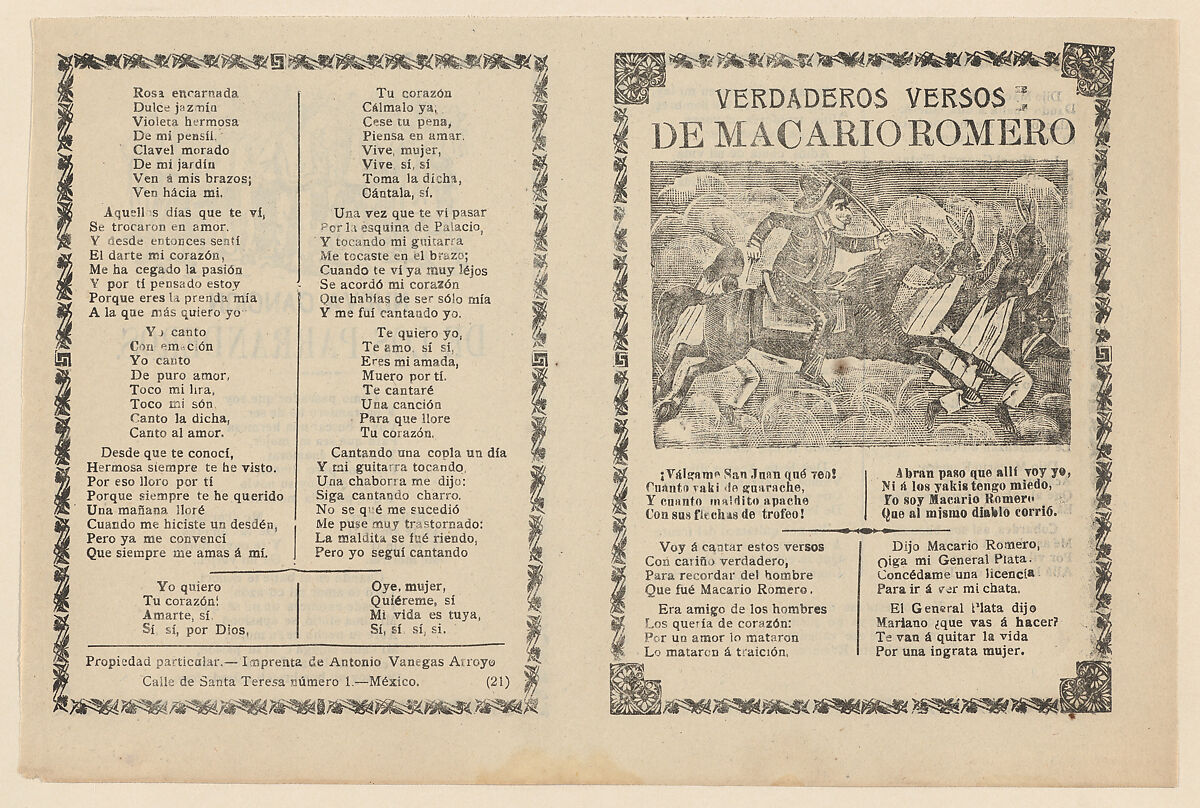 Rosa encarnada
Dulce jazmín
Violeta hermosa
De mi pensil.
Clavel morado
De mi jardín
Ven á mis brazos;
Ven hácia mi.
Aquellos días que te ví,
Se trocaron en amor.
Y desde entonces sentí
El darte mi corazón,
Me ha cegado la pasión
Y por tí pensado estoy
Porque eres la prenda mía
A la que más quiero yo
Yo canto
Con emoción
Yo canto
De puro amor,
Toco mi lira,
Toco mi són,
Canto la dicha,
Canto al amor.
Desde que te conocí,
Hermosa siempre te he visto.
Por eso lloro por tí
Porque siempre te he querido
Una mañana lloré
Cuando me hiciste un desdén,
Pero ya me convencí
Que siempre me amas á mí.
Yo quiero
Tu corazón!
Amarte, sí.
Sí, sí, por Dios,
Tu corazón
Cálmalo ya,
Cese tu pena,
Piensa en amar.
Vive, mujer,
Vive, sí, sí
Toma la dicha,
Cántala, sí.
Una vez que te ví pasar
Por la esquina de Palacio,
Y tocando mi guitarra
Me tocaste en el brazo;
Cuando te ví ya muy léjos
Se acordó mi corazón
Que habías de ser sólo mía
Y me fuí cantando yo.
Te quiero yo,
Te amo, sí sí,
Eres mi amada,
Muero por tí.
Te cantaré
Una canción
Para que llore
Tu corazón.
Cantando una copla un día
Y mi guitarra tocando,
Una chaborra me dijo:
Siga cantando charro.
No se qué me sucedió
Me puse muy trastornado:
La maldita se fué riendo,
Pero yo seguí cantando
Oye, mujer,
Quiéreme, sí
Mi vida es tuya,
Sí, sí, sí, si.
Propiedad particular.— Imprenta de Antonio Vanegas Arroyo
Calle de Santa Teresa número 1.—México. (21)
VERDADEROS VERSOS
DE MACARIO ROMERO
¡Válgame San Juan qué veo!
Cuánto yaki de guarache,
Y cuanto maldito apache
Con sus flechas de trofeo!
Abran paso que allí voy yo,
Ni á los yakis tengo miedo,
Yo soy Macario Romero
Que al mismo diablo corrió.
Voy á cantar estos versos
Con cariño verdadero,
Para recordar del hombre
Que fué Macario Romero.
Era amigo de los hombres
Los quería de corazón:
Por un amor lo mataron
Lo mataron á traición,
Dijo Macario Romero,
Oiga mi General Plata.
Concédame una licencia
Para ir á ver mi chata.
El General Plata dijo
Mariano ¿que vas á hacer?
Te van á quitar la vida
Por una ingrata mujer.